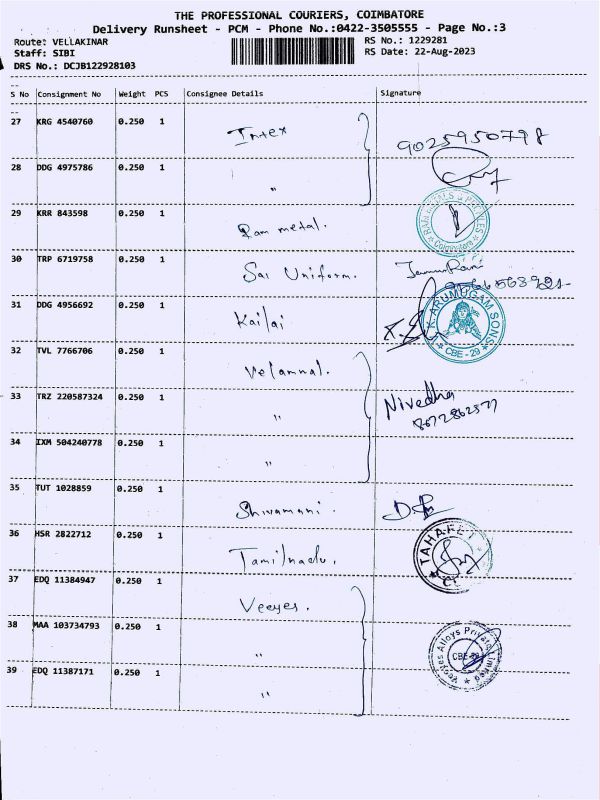 THE PROFESSIONAL COURIERS, COIMBATORE
Delivery Runsheet - PCM - Phone No.:0422-3505555 - Page No.:3
Route: VELLAKINAR RS No.: 1229281
Staff: SIBI RS Date: 22-Aug-2023
DRS No.: DCJB122928103
S No Consignment No Weight PCS Consignee Details Signature
27 KRG 4540760 0.250 1 Intex 9025950798
28 DDG 4975786 0.250 1 "
29 KRR 843598 0.250 1 Ram metal. RAM METALS & PROFILES Coimbatore
30 TRP 6719758 0.250 1 Sai Uniform.
31 DDG 4956692 0.250 1 Kailai K. ARUMUGAM SONS CBE-29
32 TVL 7766706 0.250 1 Velammal.
33 TRZ 220587324 0.250 1 " Nivedha
34 IXM 504240778 0.250 1 "
35 TUT 1028859 0.250 1 Shivamani.
36 HSR 2822712 0.250 1 Tamilnadu. TAHAFET
37 EDQ 11384947 0.250 1 Veeyes.
38 MAA 103734793 0.250 1 " Veeyes Alloys Private Limited CBE-29
39 EDQ 11387171 0.250 1 "